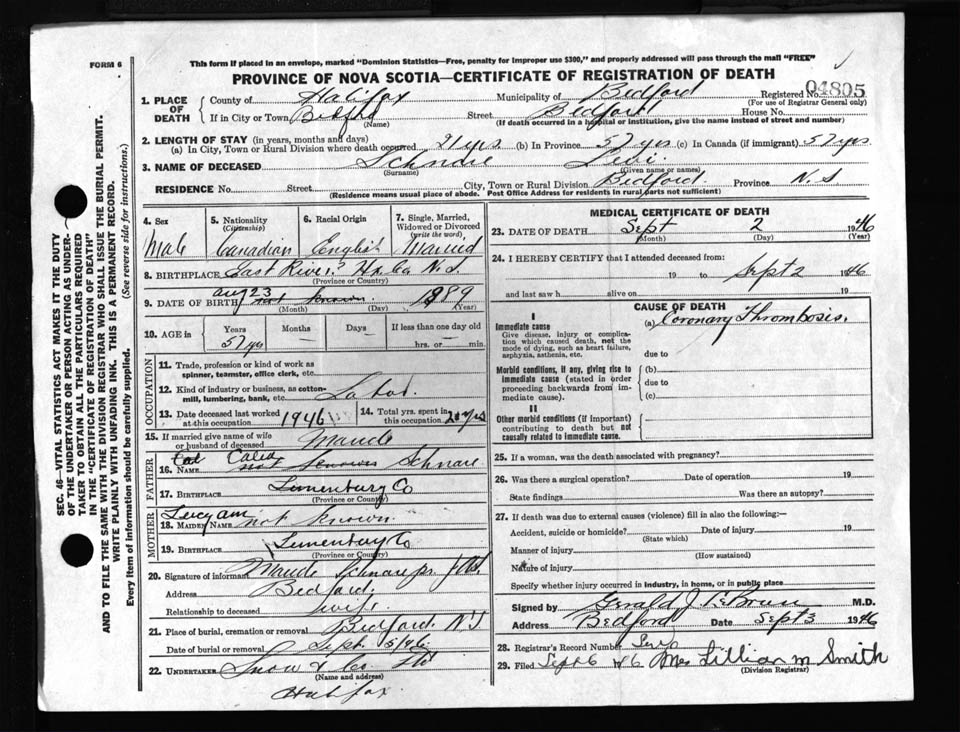 FORM 6
This form if placed in an envelope, marked "Dominion Statistics—Free, penalty for improper use $300," and properly addressed will pass through the mail "FREE"
PROVINCE OF NOVA SCOTIA—CERTIFICATE OF REGISTRATION OF DEATH
Registered No. 04805
(For use of Registrar General only)
1. PLACE OF DEATH
County of Halifax Municipality of Bedford
If in City or Town Bedford (Name) Street Bedford House No.
(If death occurred in a hospital or institution, give the name instead of street and number)
2. LENGTH OF STAY (in years, months and days)
(a) In City, Town or Rural Division where death occurred 21 yrs. (b) In Province 57 yrs (c) In Canada (if immigrant) 57 yrs.
3. NAME OF DECEASED Schnare Levi
(Surname) (Given name or names)
RESIDENCE No. Street City, Town or Rural Division Bedford Province N.S
(Residence means usual place of abode. Post Office Address for residents in rural parts not sufficient)
SEC. 46—VITAL STATISTICS ACT MAKES IT THE DUTY
OF THE UNDERTAKER OR PERSON ACTING AS UNDER-
TAKER TO OBTAIN ALL THE PARTICULARS REQUIRED
IN THE "CERTIFICATE OF REGISTRATION OF DEATH"
AND TO FILE THE SAME WITH THE DIVISION REGISTRAR WHO SHALL ISSUE THE BURIAL PERMIT.
WRITE PLAINLY WITH UNFADING INK. THIS IS A PERMANENT RECORD.
Every item of information should be carefully supplied. (See reverse side for instructions.)
4. Sex
Male
5. Nationality
(Citizenship)
Canadian
6. Racial Origin
English
7. Single, Married,
Widowed or Divorced
(write the word)
Married
8. BIRTHPLACE East River, Hx. Co. N.S.
(Province or Country)
9. DATE OF BIRTH Aug 23 not known 1889
(Month) (Day) (Year)
10. AGE in
Years
57 yrs
Months
—
Days
—
If less than one day old
hrs. or min.
OCCUPATION
11. Trade, profession or kind of work as
spinner, teamster, office clerk, etc.
12. Kind of industry or business, as cotton-
mill, lumbering, bank, etc. Labor.
13. Date deceased last worked
at this occupation 1946
14. Total yrs. spent in
this occupation 20 yrs
15. If married give name of wife
or husband of deceased Maude
FATHER
16. Name Caleb not known Schnare
17. Birthplace Lunenburg Co
(Province or Country)
MOTHER
18. Maiden Name Lucy Ann not known.
19. Birthplace Lunenburg Co
(Province or Country)
20. Signature of informant Maude Schnare
Address Bedford.
Relationship to deceased wife
21. Place of burial, cremation or removal Bedford N.S
Date of burial or removal Sept. 5/46
22. UNDERTAKER Snow & Co Ltd
(Name and address)
Halifax.
MEDICAL CERTIFICATE OF DEATH
23. DATE OF DEATH Sept 2 1946
(Month) (Day) (Year)
24. I HEREBY CERTIFY that I attended deceased from:
19 to Sept 2 1946
and last saw h alive on 19
CAUSE OF DEATH
I
Immediate cause
Give disease, injury or complica-
tion which caused death, not the
mode of dying, such as heart failure,
asphyxia, asthenia, etc.
(a) Coronary Thrombosis.
due to
Morbid conditions, if any, giving rise to
immediate cause (stated in order
proceeding backwards from im-
mediate cause).
(b)
due to
(c)
II
Other morbid conditions (if important)
contributing to death but not
causally related to immediate cause.
25. If a woman, was the death associated with pregnancy?
26. Was there a surgical operation? Date of operation 19
State findings Was there an autopsy?
27. If death was due to external causes (violence) fill in also the following:—
Accident, suicide or homicide? Date of injury 19
(State which)
Manner of injury
(How sustained)
Nature of injury
Specify whether injury occurred in industry, in home, or in public place
Signed by Gerald J. LeBrun M.D.
Address Bedford Date Sept 3 1946
28. Registrar's Record Number
29. Filed Sept 6 46 Mrs Lillian M. Smith
(Division Registrar)